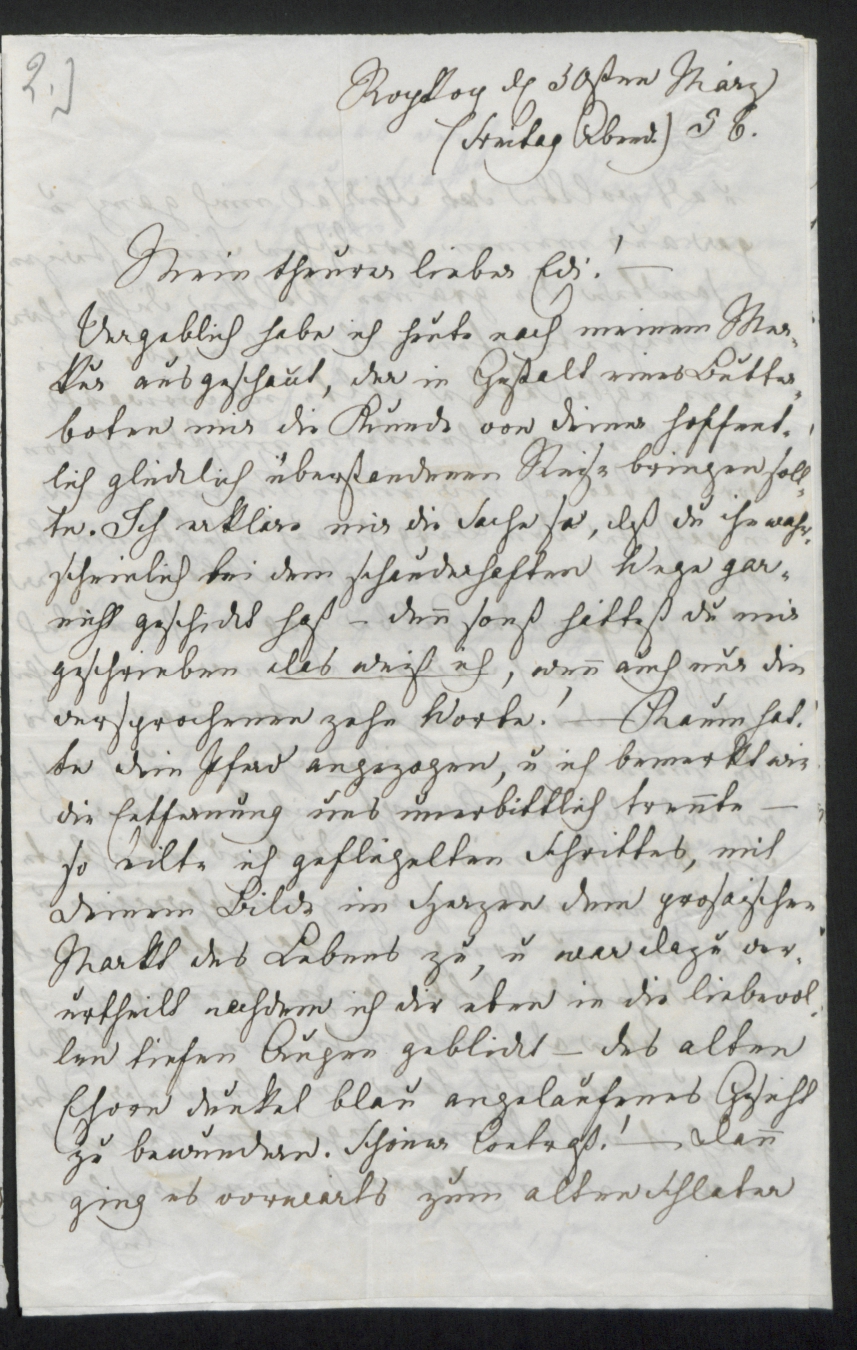 2.)
Roykoy d 30sten März
(Freitag Abend) 56.
Mein theurer lieber Edi! —
Vergeblich habe ich heute nach meinem Mer-
kur ausgeschaut, der in Gestalt eines Butter-
boten mir die Kunde von deiner hoffent-
lich glücklich überstandenen Reise bringen soll-
te. Ich erkläre mir die Sache so, daß du ihn wahr-
scheinlich bei dem schauderhaften Wege gar-
nicht geschickt hast – denn sonst hättest du mir
geschrieben das weiß ich, wenn auch nur die
versprochenen zehn Worte! — Kaum hat-
te dein Pferd angezogen, u ich bemerkt wie
die Entfernung uns unerbittlich trennte —
so eilte ich geflügelten Schrittes, mit
deinem Bilde im Herzen dem prosaischen
Markt des Lebens zu, u war dazu ver-
urtheilt nachdem ich dir eben in die liebevol-
len tiefen Augen geblickt – des alten
dunkel blau angelaufenes Gesicht
zu bewundern. Schöner Contrast! — Dann
ging es vorwärts zum alten Schlater